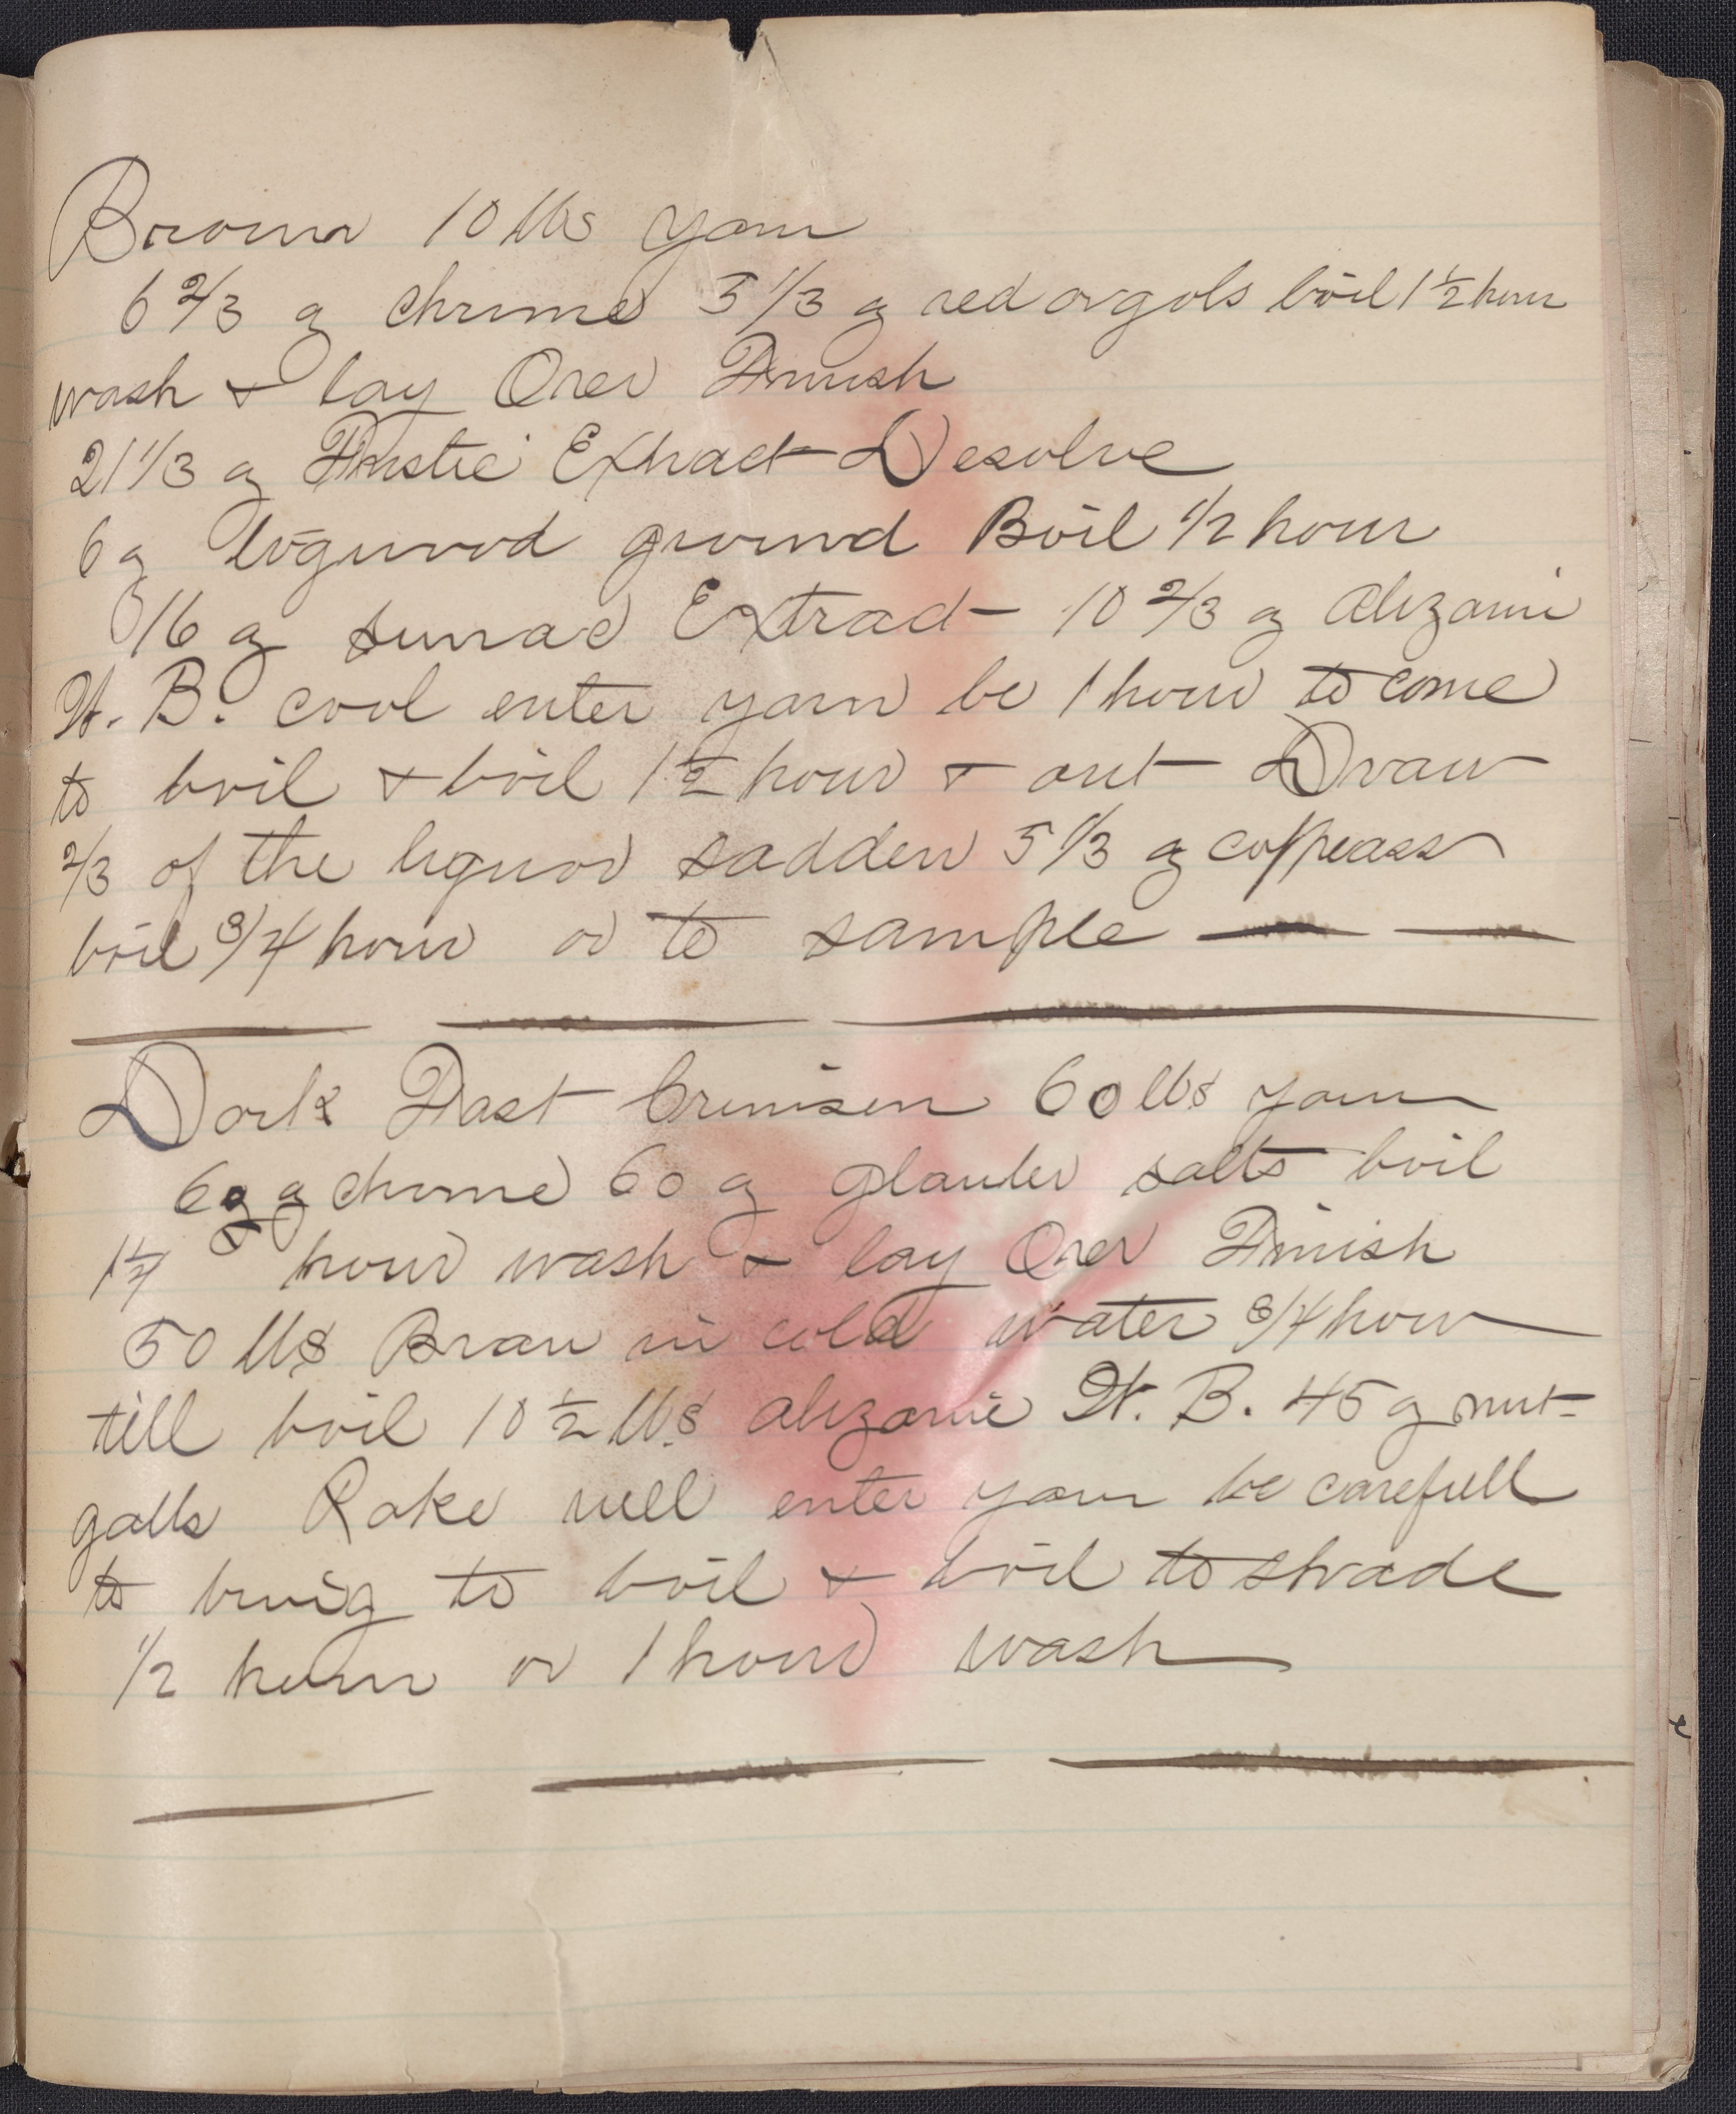 Brown 10 lbs yarn
6 2/3 oz chrome 5 1/3 oz red argols boil 1 1/2 hour
wash & lay Over Finish
21 1/3 oz Fustic Extract Desolve
6 oz logwood ground Boil 1/2 hour
16 oz sumac Extract 10 2/3 oz Alizarin
W. B. cool enter yarn be 1 hour to come
to boil & boil 1 1/2 hour & out Draw
2/3 of the liquor sadden 5 1/3 oz coppeass
boil 3/4 hour or to sample
Dark Fast Crimson 60 lbs yarn
oz chrome 60 oz glauber salts boil
hour wash & lay Over Finish
50 lbs Bran in cold water 3/4 hour
till boil 10 1/2 lbs alizarin W. B. 45 oz nut-
galls Rake well enter yarn be carefull
to bring to boil & boil to shade
1/2 hour or 1 hour wash